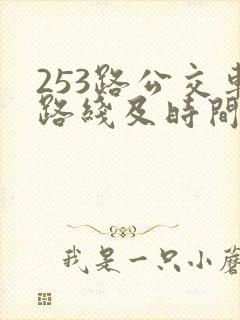 253路公交車
路綫及時間
我是一只小蘑